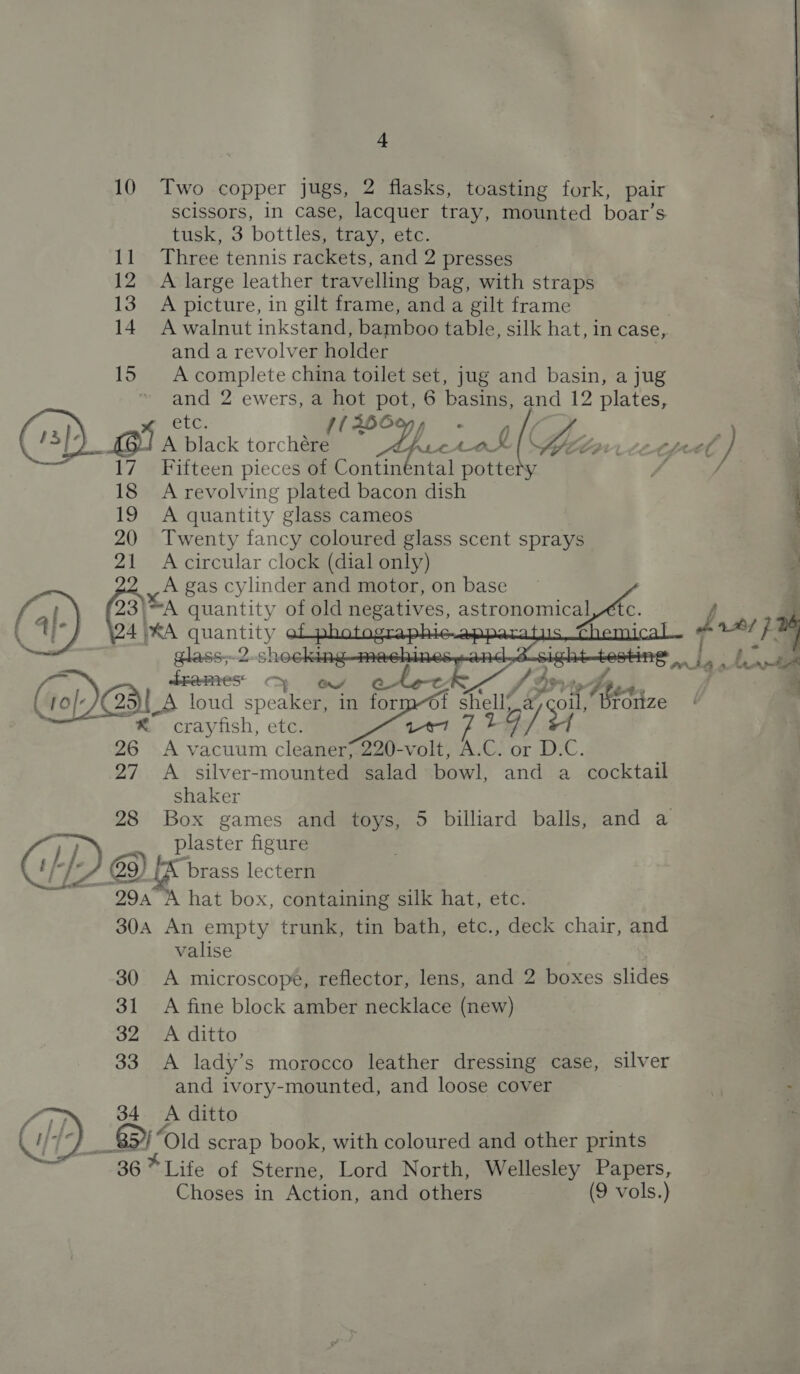 4
10 Two copper jugs, 2 flasks, toasting fork, pair
scissors, in case, lacquer tray, mounted boar's
tusk, 3 bottles, tray, etc.
11 Three tennis rackets, and 2 presses
12 A large leather travelling bag, with straps
13 A picture, in gilt frame, and a gilt frame
14 A walnut inkstand, bamboo table, silk hat, in case,
and a revolver holder
15 A complete china toilet set, jug and basin, a jug
and 2 ewers, a hot pot, 6 basins, and 12 plates,
etc.
13/- 16 A black torchère
17 Fifteen pieces of Continental pottery
18 A revolving plated bacon dish
19 A quantity glass cameos
20 Twenty fancy coloured glass scent sprays
21 A circular clock (dial only)
22 A gas cylinder and motor, on base
23 A quantity of old negatives, astronomical, etc.
4/- 24 A quantity of photographic apparatus, chemical
glass, 2 shocking machines, and 3 sight-testing
frames
10/- 25 A loud speaker, in form of shell, a coil, bronze
crayfish, etc.
26 A vacuum cleaner, 220-volt, A.C. or D.C.
27 A silver-mounted salad bowl, and a cocktail
shaker
28 Box games and toys, 5 billiard balls, and a
plaster figure
29 A brass lectern
29A A hat box, containing silk hat, etc.
30A An empty trunk, tin bath, etc., deck chair, and
valise
30 A microscope, reflector, lens, and 2 boxes slides
31 A fine block amber necklace (new)
32 A ditto
33 A lady's morocco leather dressing case, silver
and ivory-mounted, and loose cover
34 A ditto
35 Old scrap book, with coloured and other prints
36 Life of Sterne, Lord North, Wellesley Papers,
Choses in Action, and others (9 vols.)